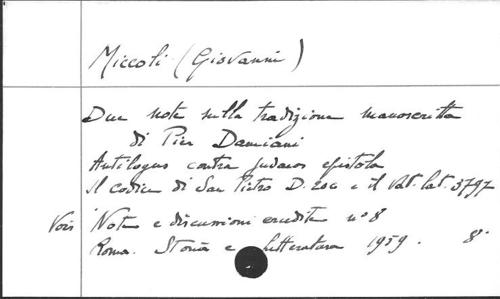 Miccoli (Giovanni)
Due note sulla tradizione manoscritta
di Pier Damiani
Antilogus contra judaeos epistola
Il codice di San Pietro D. 206 e il Vat. lat. 3797
Voir Note e discussioni erudite n° 8
Roma. Storia e Letteratura 1959. 8°